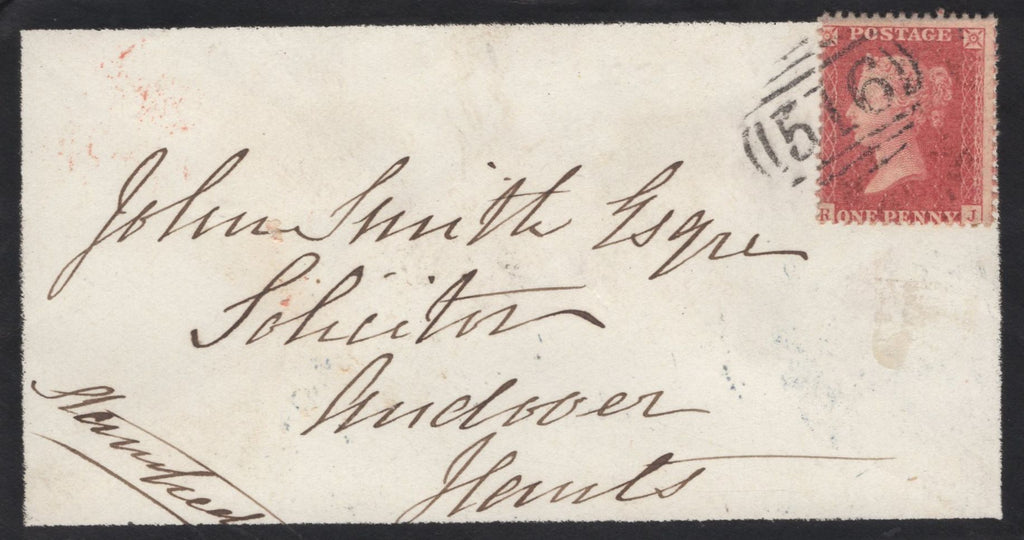 POSTAGE
516
R ONE PENNY J
John Smith Esqre
Solicitor
Andover
Hants
Stamped